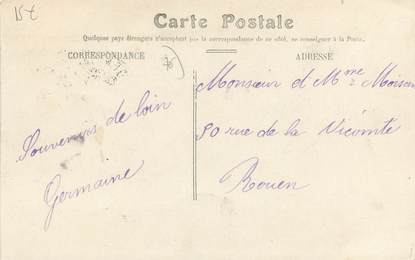 15€
Carte Postale
Quelques pays étrangers n'acceptent pas la correspondance de ce côté, se renseigner à la Poste.
CORRESPONDANCE
ADRESSE
Souvenirs de loin
Germaine
Monsieur et Mme Moison
50 rue de la Vicomté
Rouen